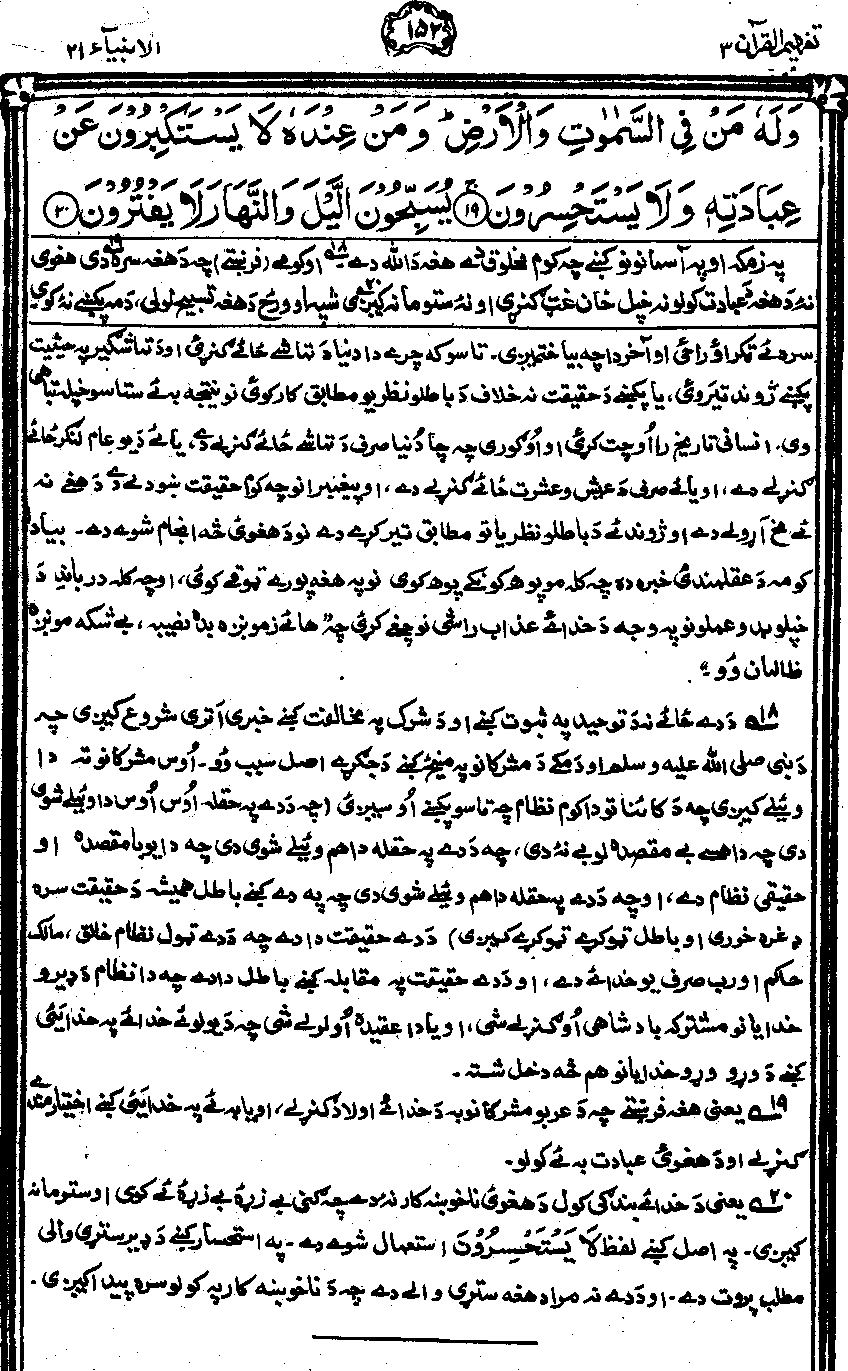 تفهيم القرآن ۳
۱۵۲
الانبيآء ۲۱
وَلَهٗ مَنْ فِی السَّمٰوٰتِ وَالْاَرْضِ ؕ وَ مَنْ عِنْدَهٗ لَا یَسْتَكْبِرُوْنَ عَنْ
عِبَادَتِهٖ وَ لَا یَسْتَحْسِرُوْنَ ۚ ﴿۱۹﴾ یُسَبِّحُوْنَ الَّیْلَ وَالنَّهَارَ لَا یَفْتُرُوْنَ ﴿۲۰﴾
په زمکه او په آسمانونو کښے چه کوم مخلوق دے هغه دَ الله دے ۱۸ او کومے (فرښتے) چه دَ هغه سره دی ۱۹ هغوی
نهٔ دَ هغهٔ دَ عبادت کولو نه خپل ځان غټ ګنړی او نهٔ ستومانه کیږی ۲۰ شپه او ورځ دَ هغه تسبیح لولی، دَمه پکښے نهٔ کوی
سره ئے ټکراؤ راځی او آخر دا چه بیا ختمیږی۔ تاسو که چرے دا دنیا دَ تماشے ځائے ګنړئ او دَ تماشګیر په حیثیت
پکښے ژوند تیروئ، یا پکښے دَ حقیقت نه خلاف دَ باطلو نظریو مطابق کار کوئ نو نتیجه به ئے ستاسو خپله تباهی
وی۔ انسانی تاریخ را اُوچت کړئ او اُوګورئ چه چا دُنیا صرف دَ تماشے ځائے ګنړلے دے، یا ئے دَ یو عام لنګر ځائے
ګنړلے دے، او یا ئے صرف دَ عیش و عشرت ځائے ګنړلے دے، او پیغمبرانو چه کوم حقیقت ښودلے دے دَ هغے نه
ئے مخ اَړولے دے او ژوند ئے دَ باطلو نظریاتو مطابق تیر کړے دے نو دَ هغوئ څه انجام شوے دے۔ بیا دا
کومه دَ عقلمندئ خبره ده چه کله مو پوهه کونکے پوهه کوی نو په هغه پورے ټوقے کوئ، او چه کله درباندِ دَ
خپلو بدو عملونو په وجه دَ خدائے عذاب راشی نو چغے کړئ چهٖ "هائے زمونږه بد نصیبه، بےشکه مونږه
ظالمان وُو"
۱۸ دَ دے ځائے نه دَ توحید په ثبوت کښے او دَ شرک په مخالفت کښے خبری اَتری شروع کیږی چه
دَ نبی صلی الله علیه وسلم او دَ مکے دَ مشرکانو په مینځ کښے دَ جګړے اصل سبب وُو۔ اُوس مشرکانو ته دا
وئیلے کیږی چه دَ کائنات دا کوم نظام چه تاسو پکښے اُوسیږئ (چه دَ دے په حقله اُوس اُوس دا وئیلے شوی
دی چه دا هسے بےمقصده لوبے نهٔ دی، چه دَ دے په حقله دا هم وئیلے شوی دی چه دا یو بامقصده او
حقیقی نظام دے، او چه دَ دے په حقله دا هم وئیلے شوی دی چه په دے کښے باطل همیشه دَ حقیقت سره
ډغره خوری او باطل ټوکړے ټوکړے کیږی) دَ دے حقیقت دا دے چه دَ دے ټول نظام خالق، مالک
حاکم او رب صرف یو خدائے دے، او دَ دے حقیقت په مقابله کښے باطل دا دے چه دا نظام دَ ډیرو
خدایانو مشترکه بادشاهی اُوګنړلے شی، او یا دا عقیده اُولرلے شی چه دَ یو لوئے خدائے په خدایئ
کښے دَ وړو وړو خدایانو هم څه دخل شته۔
۱۹ یعنی هغه فرښتے چه دَ عربو مشرکانو به دَ خدائے اولاد ګنړلے، او یا به ئے په خدایئ کښے اختیارمندے
ګنړلے او دَ هغوئ عبادت به ئے کولو۔
۲۰ یعنی دَ خدائے بندګی کول دَ هغوئ ناخوښه کار نهٔ دے چه ګنی بے زړهٔ بے زړهٔ ئے کوی او ستومانه
کیږی۔ په اصل کښے لفظ لَا یَسْتَحْسِرُوْنَ استعمال شوے دے۔ په استحسار کښے دَ ډیر ستړی والی
مطلب پروت دے۔ او دَ دے نه مراد هغه ستړی والے دے چه دَ ناخوښه کار په کولو سره پیدا کیږی۔